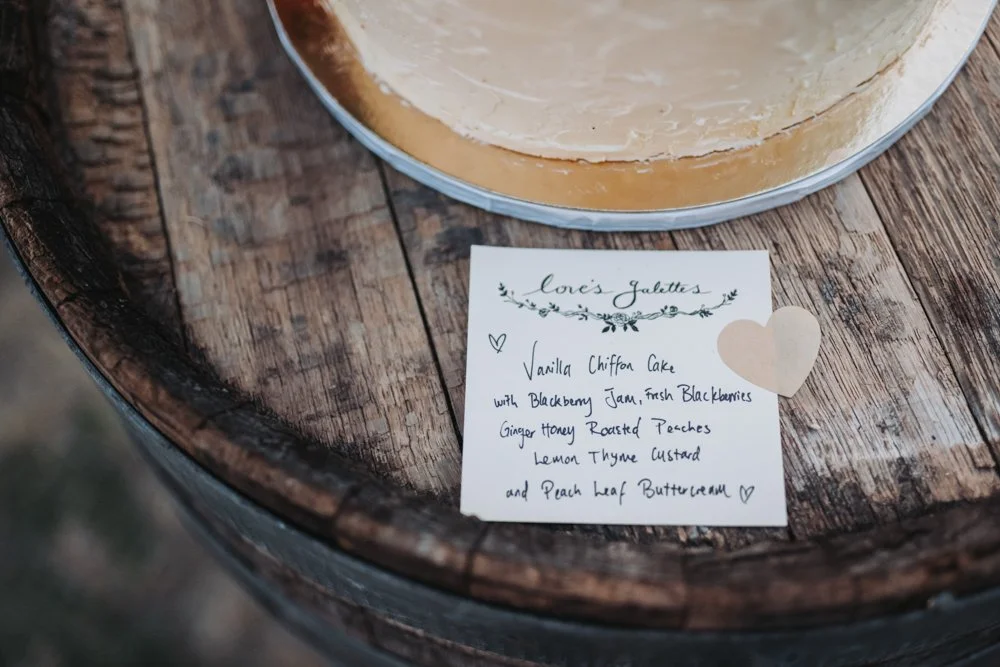 love's galettes
Vanilla Chiffon Cake
with Blackberry Jam, Fresh Blackberries
Ginger Honey Roasted Peaches
Lemon Thyme Custard
and Peach Leaf Buttercream